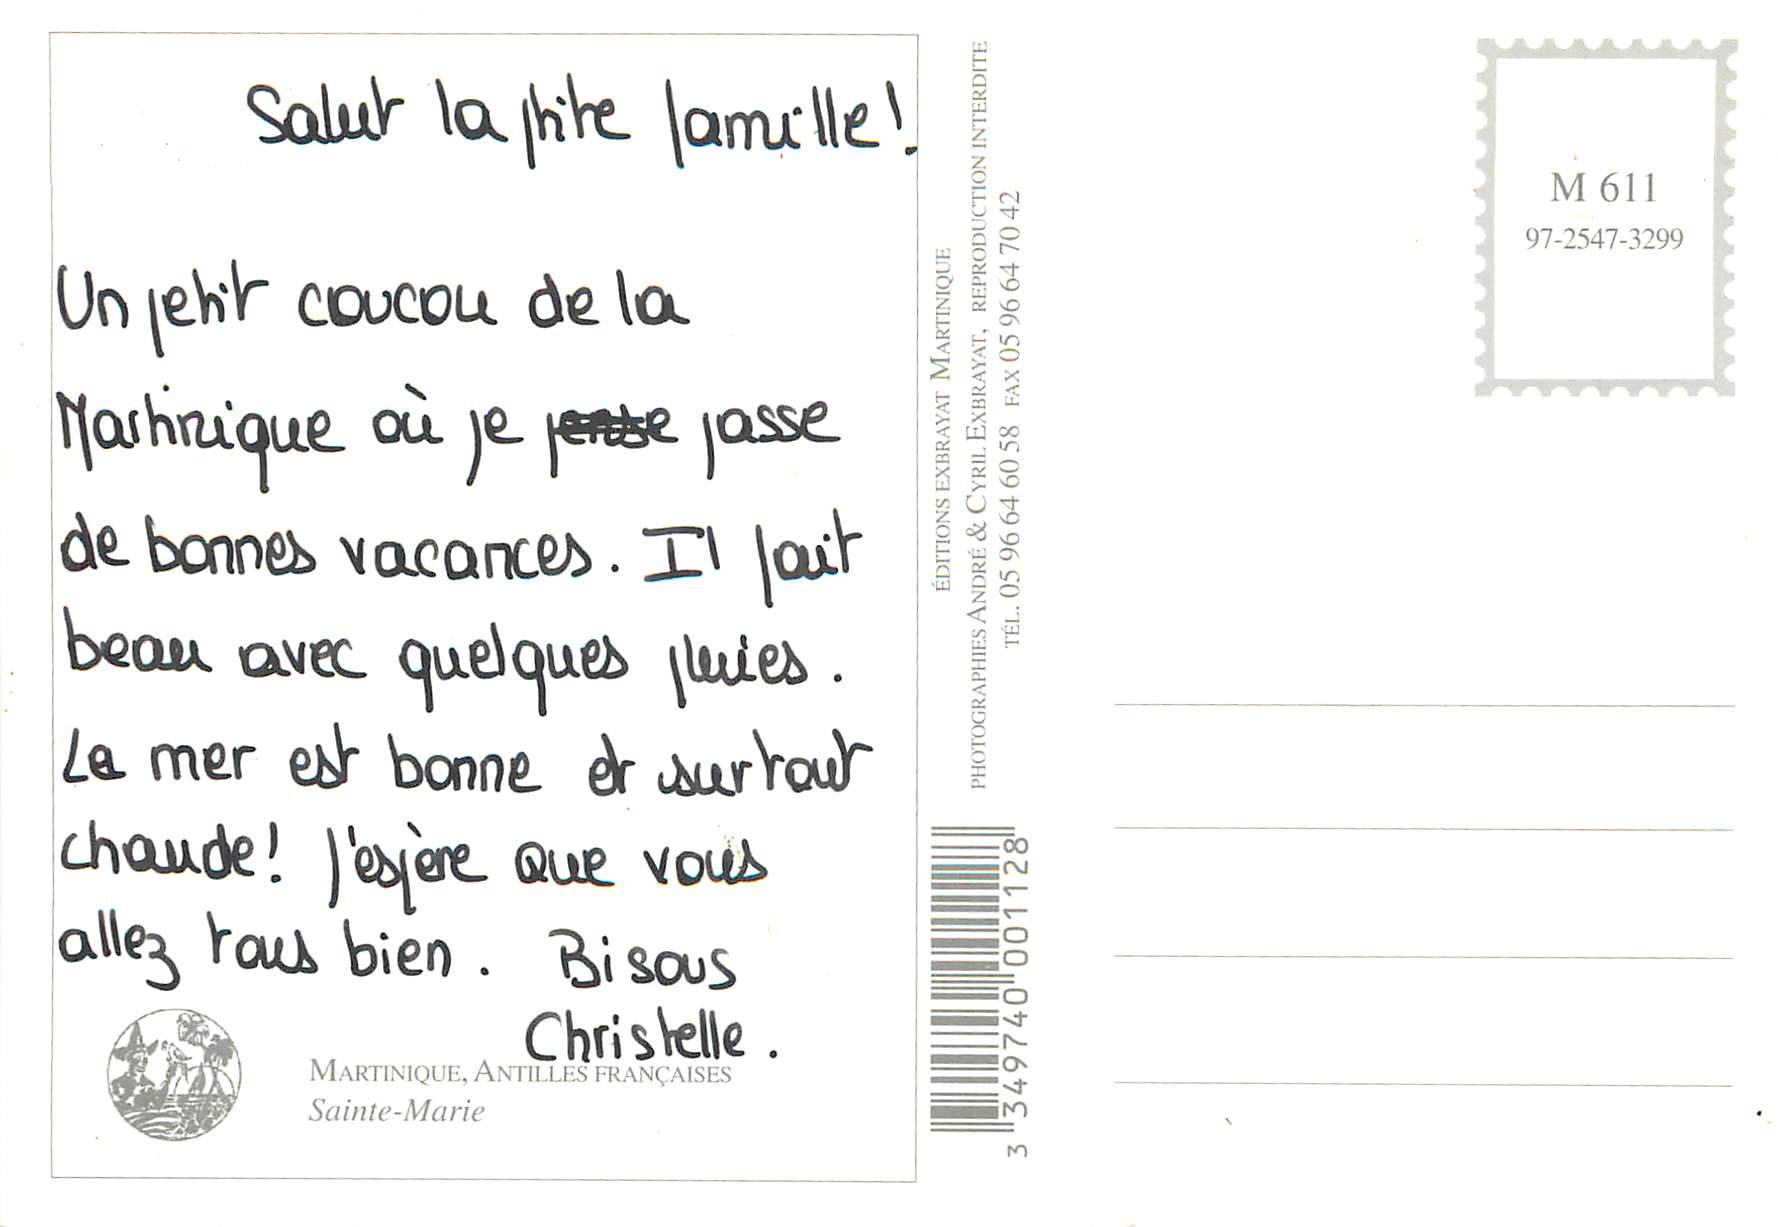 Salut la ptite famille!
Un petit coucou de la
Martinique où je pense passe
de bonnes vacances. Il fait
beau avec quelques pluies.
La mer est bonne et surtout
chaude! J'espère que vous
allez tous bien. Bisous
Christelle.
MARTINIQUE, ANTILLES FRANÇAISES
Sainte-Marie
ÉDITIONS EXBRAYAT MARTINIQUE
PHOTOGRAPHIES ANDRÉ & CYRIL EXBRAYAT, REPRODUCTION INTERDITE
TÉL. 05 96 64 60 58 FAX 05 96 64 70 42
3 349740 001128
M 611
97-2547-3299